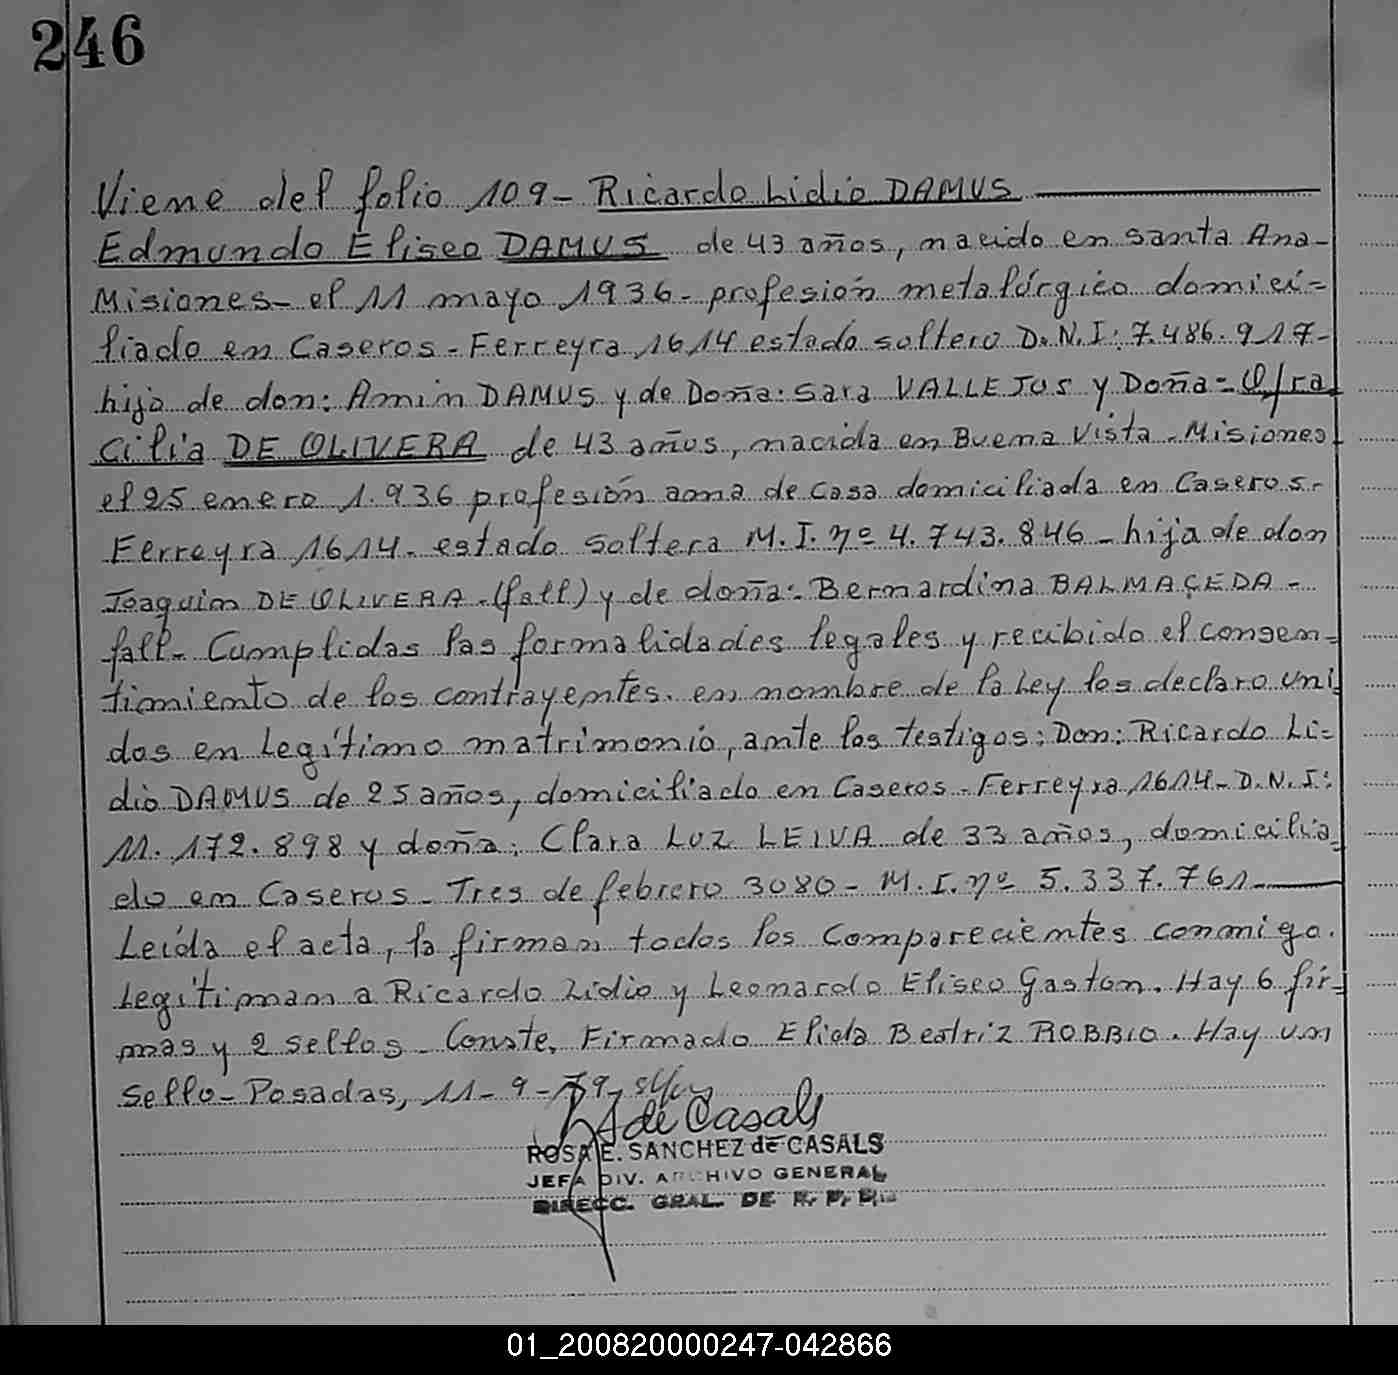 246
Viene del folio 109- Ricardo Lidio DAMUS
Edmundo Eliseo DAMUS de 43 años, nacido en santa Ana-
Misiones- el 11 mayo 1936- profesión metalúrgico domici-
liado en Caseros- Ferreyra 1614 estado soltero D.N.I: 7.486.917-
hijo de don: Amin DAMUS y de Doña: Sara VALLEJOS y Doña=
cilia DE OLIVERA de 43 años, nacida en Buena Vista- Misiones
el 25 enero 1.936 profesión ama de casa domiciliada en Caseros-
Ferreyra 1614- estado soltera M.I. nº 4.743.846- hija de don
Joaquim DE OLIVERA-(fall) y de doña: Bernardina BALMACEDA-
fall- Cumplidas las formalidades legales y recibido el consen-
timiento de los contrayentes. en nombre de la Ley los declaro uni-
dos en Legítimo matrimonio, ante los testigos: Don: Ricardo Li-
dio DAMUS de 25 años, domiciliado en Caseros- Ferreyra 1614- D.N.I:
11.172.898 y doña: Clara LUZ LEIVA de 33 años, domicilia-
do en Caseros- Tres de febrero 3080- M.I. nº 5.337.761-
Leída el acta, la firman todos los comparecientes conmigo.
Legitiman a Ricardo Lidio y Leonardo Eliseo Gaston. Hay 6 fir-
mas y 2 sellos- Conste. Firmado Elida Beatriz ROBBIO. Hay un
Sello- Posadas, 11-9-79-
de Casals
ROSA E. SANCHEZ de CASALS
JEFA DIV. ARCHIVO GENERAL
DIRECC. GRAL. DE R. P.
01_200820000247-042866